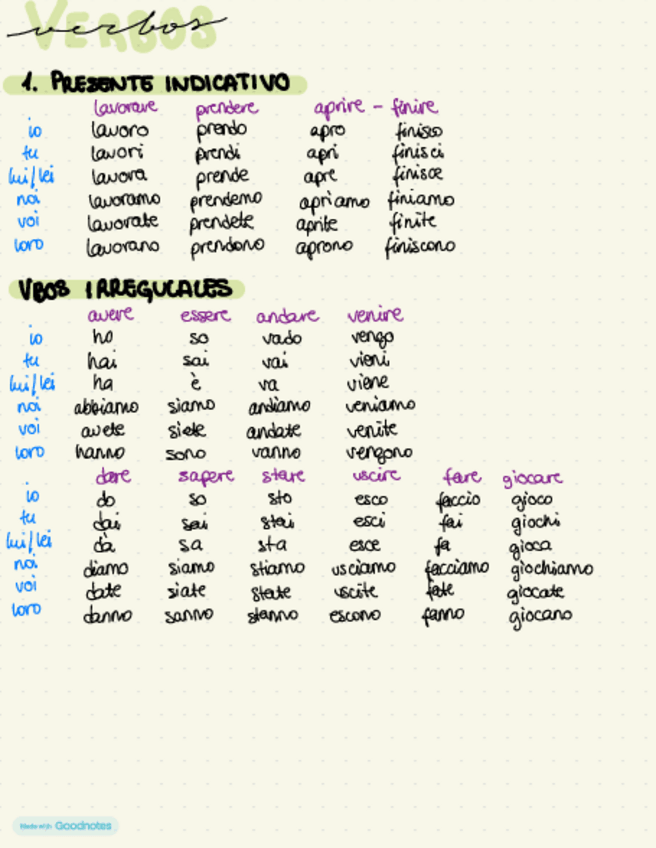 VERBOS
verbos
1. PRESENTE INDICATIVO
lavorare prendere aprire - finire
io lavoro prendo apro finisco
tu lavori prendi apri finisci
lui/lei lavora prende apre finisce
noi lavoramo prendemo apriamo finiamo
voi lavorate prendete aprite finite
loro lavorano prendono aprono finiscono
VBOS IRREGULALES
avere essere andare venire
io ho so vado vengo
tu hai sai vai vieni
lui/lei ha è va viene
noi abbiamo siamo andiamo veniamo
voi avete siete andate venite
loro hanno sono vanno vengono
dare sapere stare uscire fare giocare
io do so sto esco faccio gioco
tu dai sai stai esci fai giochi
lui/lei dà sa sta esce fa gioca
noi diamo siamo stiamo usciamo facciamo giochiamo
voi date siate state uscite fate giocate
loro danno sanno stanno escono fanno giocano
Made with Goodnotes